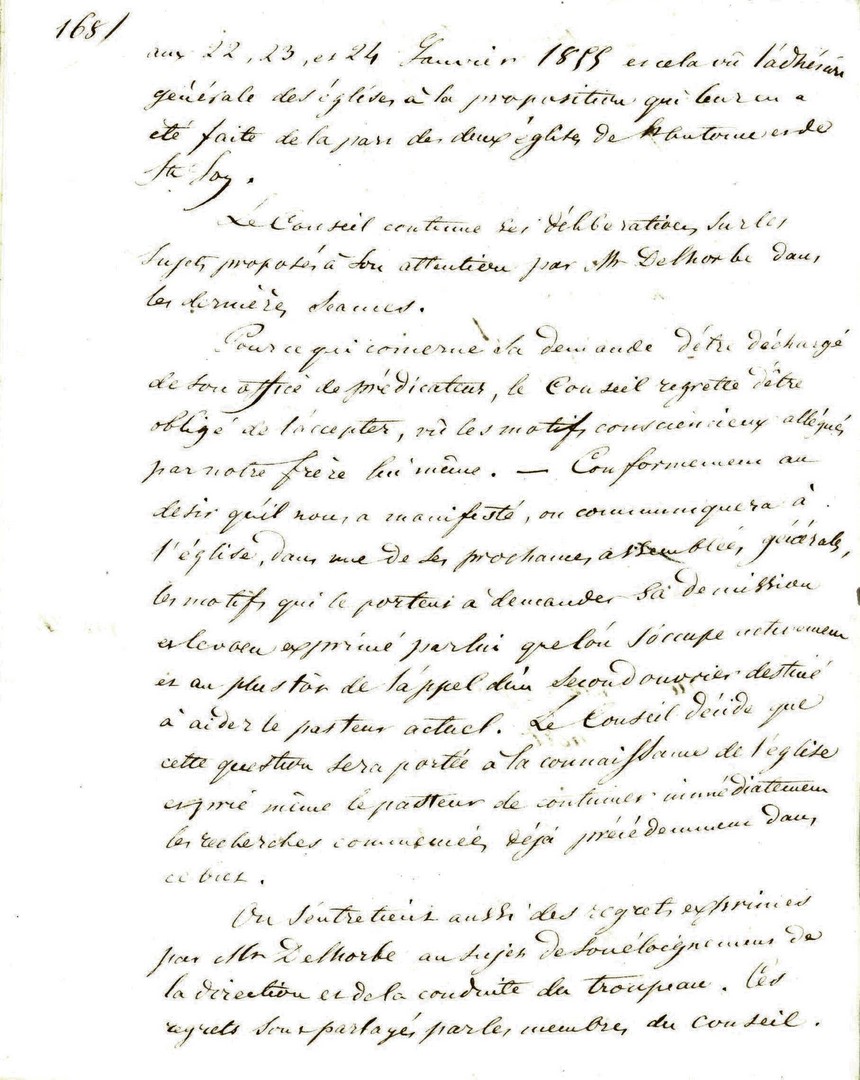 168/
aux 22, 23, et 24 Janvier 1855 et cela vû l'adhésion
générale des églises à la proposition qui leur en a
été faite de la part des deux églises de St Antoine et de
Ste Foy.
Le Conseil continue ses délibérations sur les
sujets proposés à son attention par Mr Delhorbe dans
les dernières séances.
Pour ce qui concerne sa demande d'être déchargé
de son office de prédicateur, le Conseil regrette d'être
obligé de l'accepter, vû les motifs consciencieux allégués
par notre frère lui même. — Conformement au
desir qu'il nous a manifesté, on communiquera à
l'église, dans une de ses prochaines assemblées générales,
les motifs qui le portent à demander sa demission
et le voeu exprimé par lui que l'on s'occupe activement
et au plus tôt de l'appel d'un second ouvrier destiné
à aider le pasteur actuel. Le Conseil décide que
cette question sera portée à la connaissance de l'église
et prie même le pasteur de continuer immédiatement
les recherches commencées déjà précédemment dans
ce but.
On s'entretient aussi des regrets exprimés
par Mr Delhorbe au sujet de son éloignement de
la direction et de la conduite du troupeau. Ces
regrets sont partagés par les membres du Conseil.